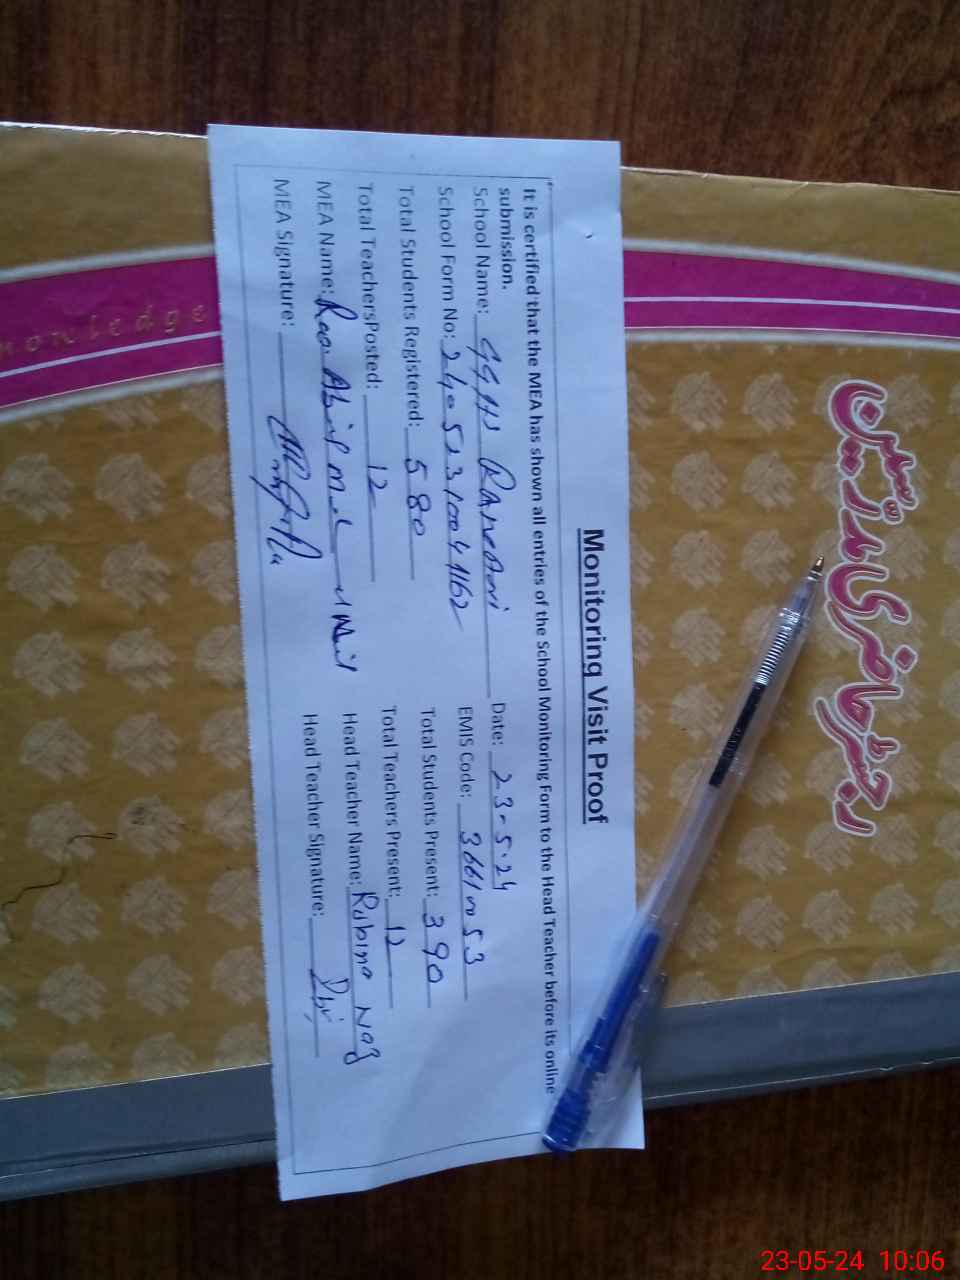 Monitoring Visit Proof
It is certified that the MEA has shown all entries of the School Monitoring Form to the Head Teacher before its online
submission.
School Name: GGHS Date: 23-5-24
School Form No: EMIS Code:
Total Students Registered: 580 Total Students Present: 390
Total TeachersPosted: 12 Total Teachers Present: 12
MEA Name: Rao Head Teacher Name: Rubina Naz
MEA Signature: Head Teacher Signature:
رجسٹر حاضری مدرسین
nowledge
23-05-24 10:06